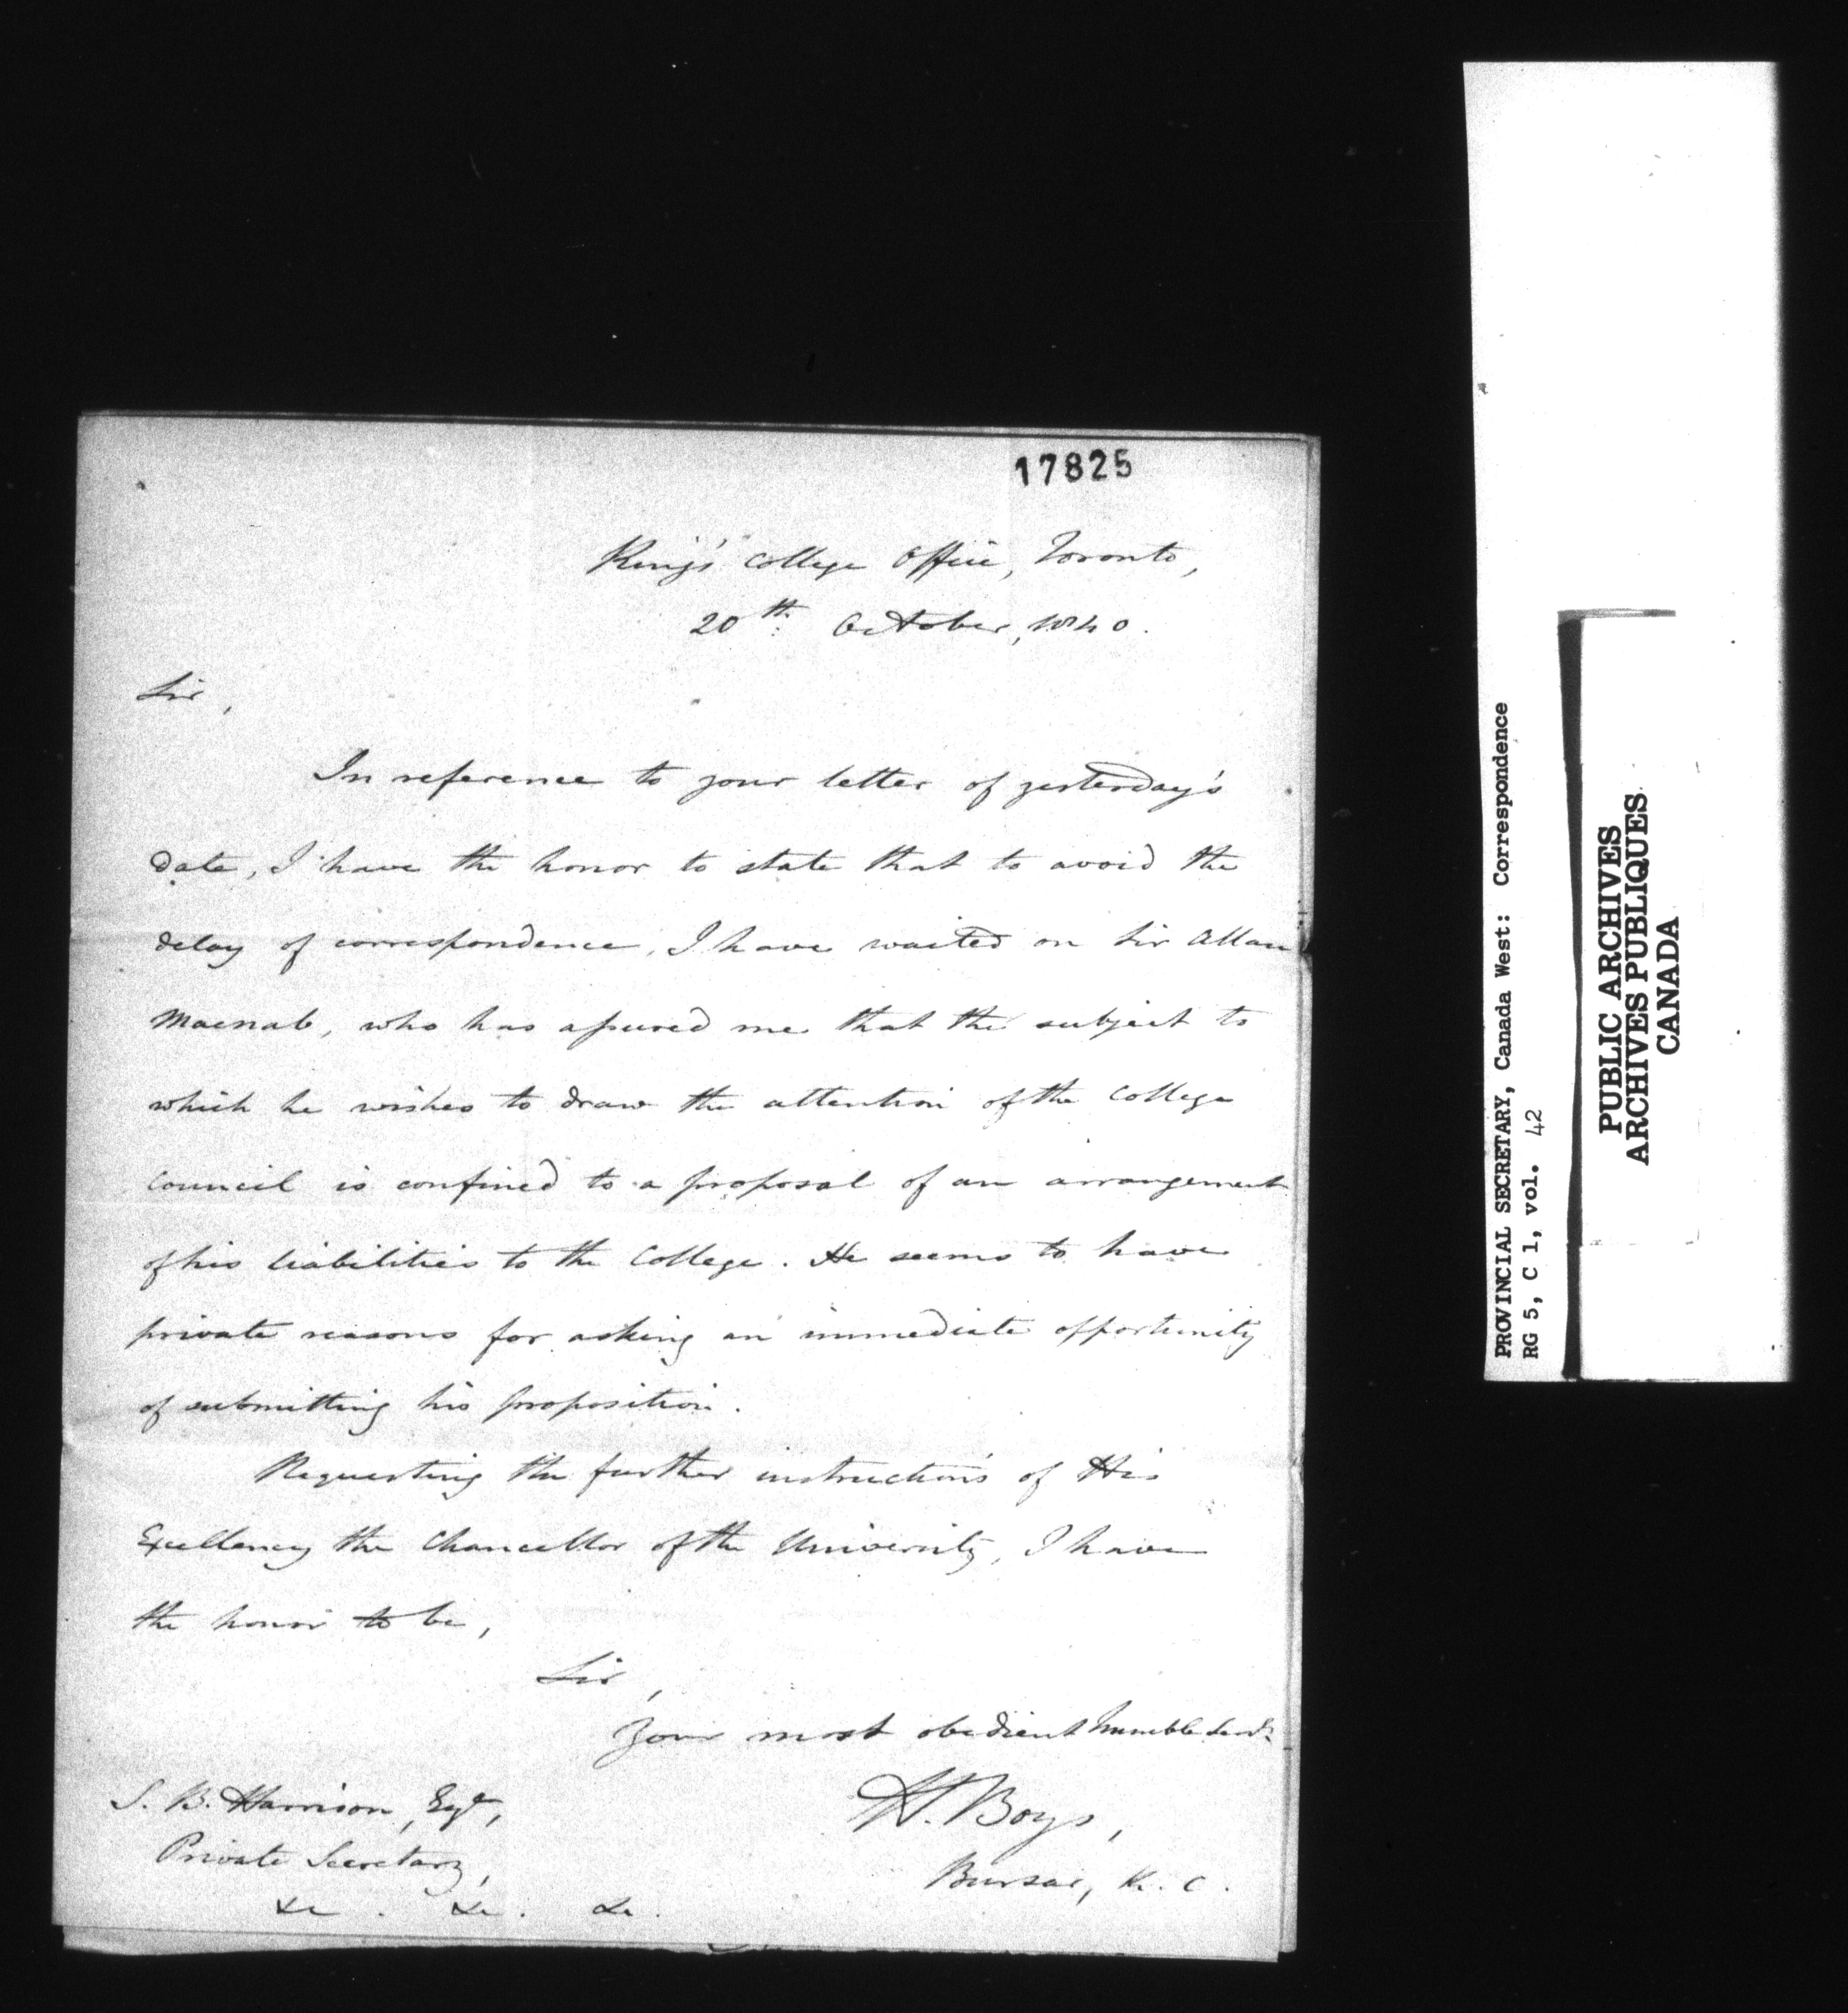 17825
King's College Office, Toronto,
20th October, 1840.
Sir,
In reference to your letter of yesterday's
date, I have the honor to state that to avoid the
delay of correspondence, I have waited on Sir Allan
Macnab, who has assured me that the subject to
which he wishes to draw the attention of the College
Council is confined to a proposal of an arrangement
of his liabilities to the College. He seems to have
private reasons for asking an immediate opportunity
of submitting his proposition.
Requesting the further instructions of His
Excellency the Chancellor of the University, I have
the honor to be,
Sir,
Your most obedient humble Servt.
H. Boys,
Bursar, K. C.
S. B. Harrison, Esqe,
Private Secretary,
&c. &c. &c.
PROVINCIAL SECRETARY, Canada West: Correspondence
RG 5, C 1, vol. 42
PUBLIC ARCHIVES
ARCHIVES PUBLIQUES
CANADA